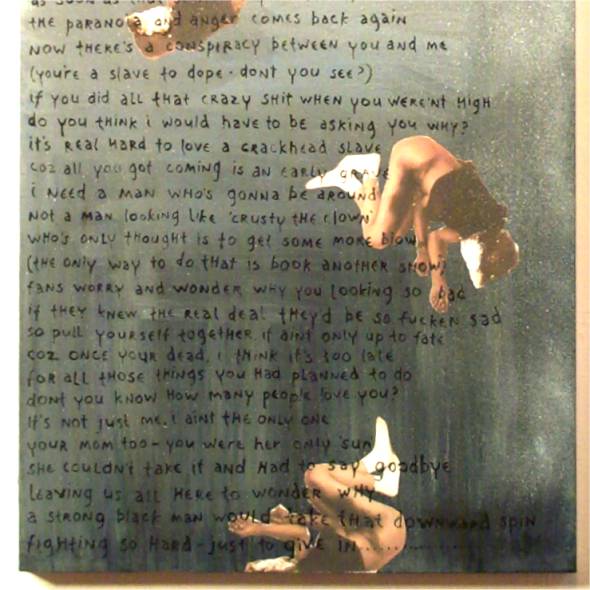 as soon as tha
the paranoia and anger comes back again
now there's a conspiracy between you and me
(you're a slave to dope - dont you see?)
if you did all that crazy shit when you were'nt high
do you think i would have to be asking you why?
it's real hard to love a crackhead slave
coz all you got coming is an early grave
i need a man who's gonna be around
not a man looking like 'crusty the clown'
who's only thought is to get some more blow
(the only way to do that is book another show)
fans worry and wonder why you looking so bad
if they knew the real deal they'd be so fucken sad
so pull yourself together. it aint only up to fate
coz once your dead, i think it's too late
for all those things you had planned to do
dont you know how many people love you?
it's not just me. i aint the only one
your mom too - you were her only 'sun'
she couldn't take it and had to say goodbye
leaving us all here to wonder why
a strong black man would take that downward spin
fighting so hard - just to give in..................